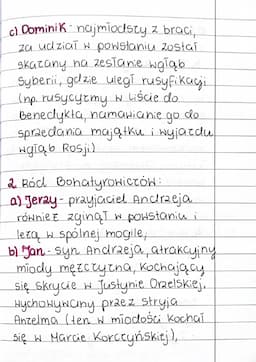 c) Dominik - najmłodszy z braci,
za udział w powstaniu został
skazany na zesłanie wgłąb
Syberii, gdzie uległ rusyfikacji
(np. rusycyzmy w liście do
Benedykta, namawianie go do
sprzedania majątku i wyjazdu
wgłąb Rosji)
2. Ród Bohatyrowiczów:
a) Jerzy - przyjaciel Andrzeja
również zginął w powstaniu i
leżą w spólnej mogile,
b) Jan - syn Andrzeja, atrakcyjny
młody mężczyzna, kochający
się skrycie w Justynie Orzelskiej,
wychowywany przez stryja
Anzelma (ten w młodości kochał
się w Marcie Korczyńskiej),